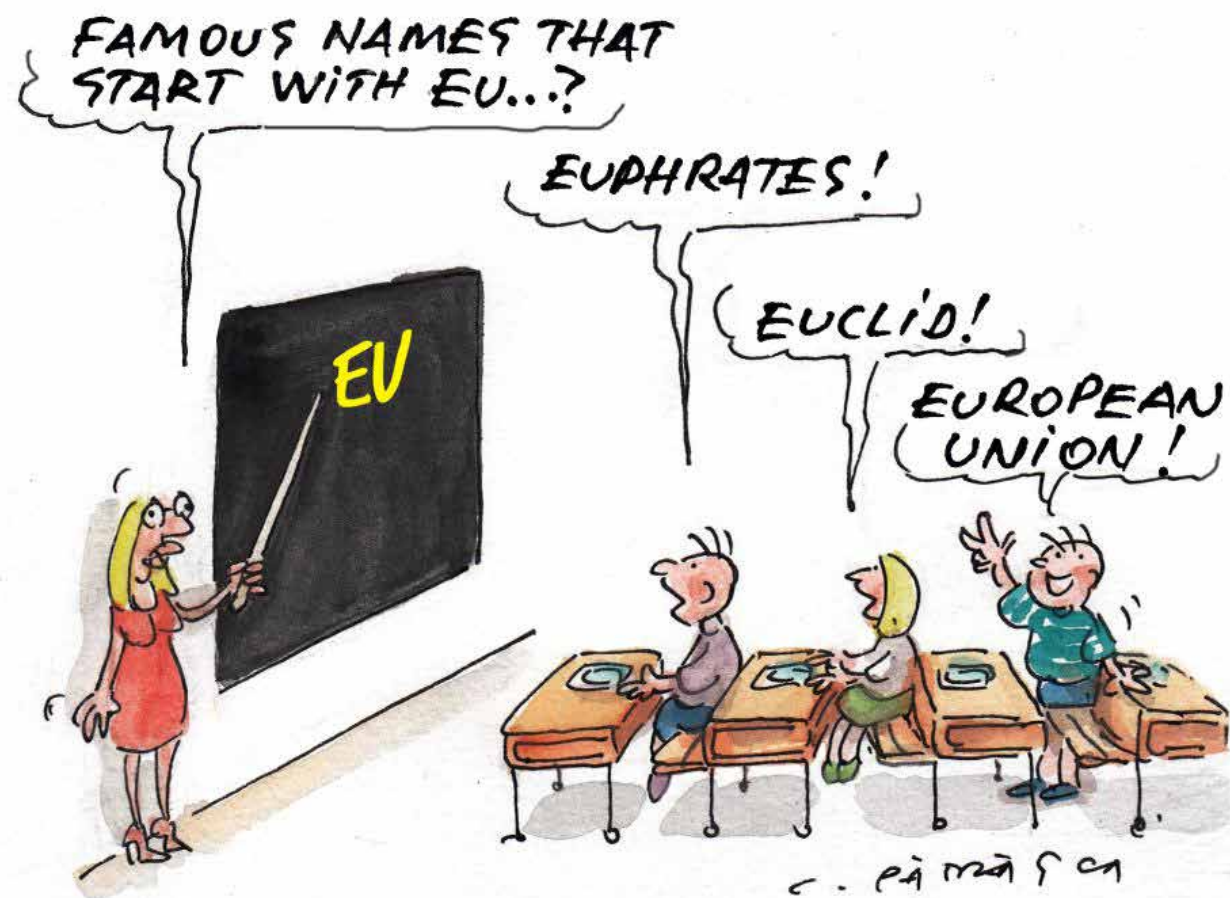 FAMOUS NAMES THAT
START WITH EU...?
EUPHRATES!
EUCLID!
EUROPEAN
UNION!
EU